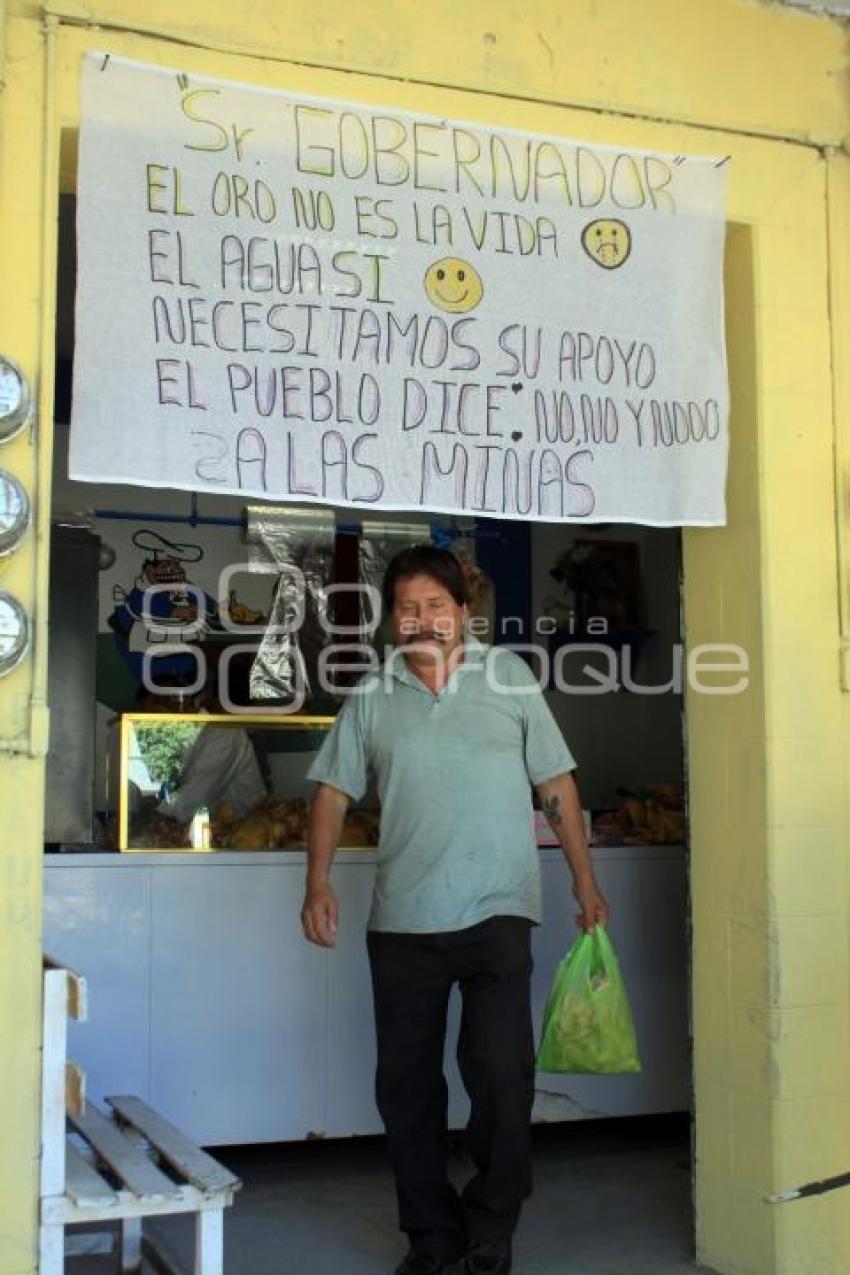 "Sr. GOBERNADOR"
EL ORO NO ES LA VIDA
EL AGUA SI
NECESITAMOS SU APOYO
EL PUEBLO DICE: NO, NO Y NOOO
A LAS MINAS
agencia
enfoque